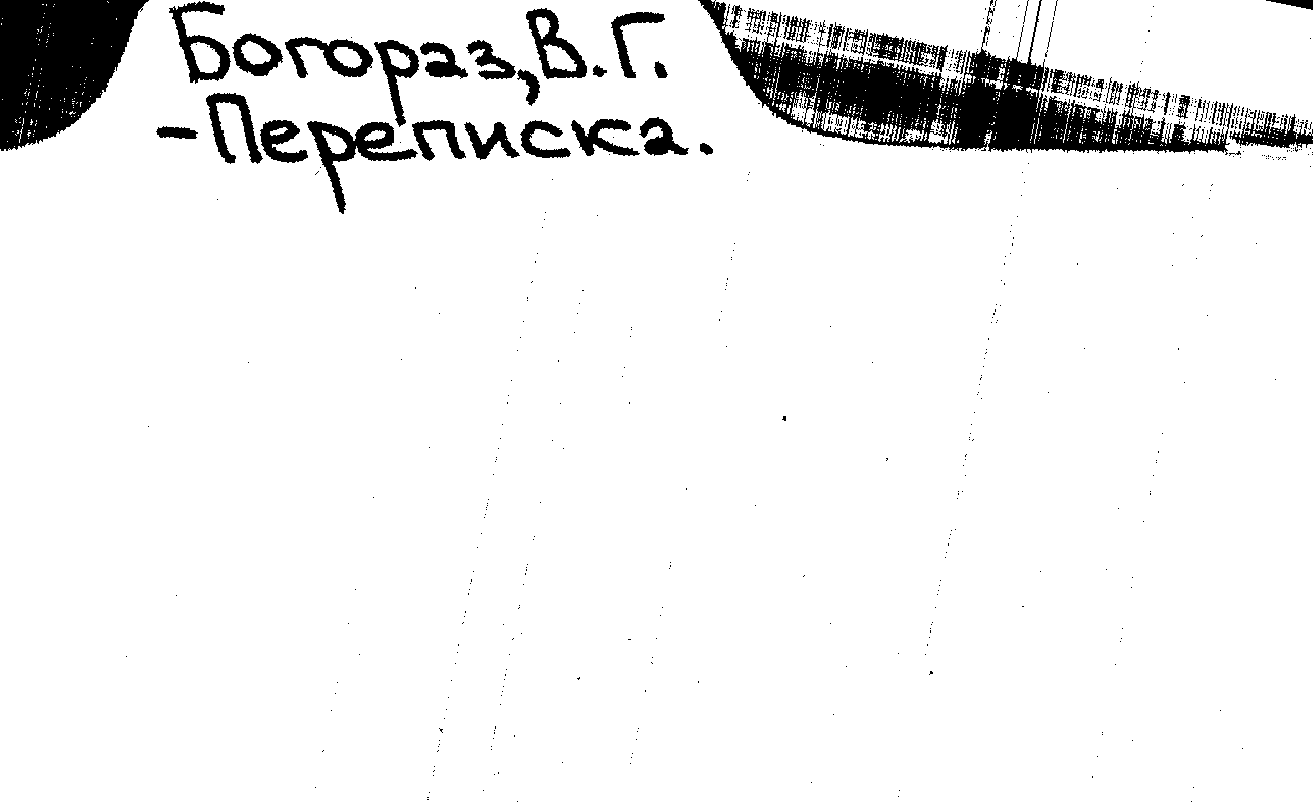 Богораз, В.Г.
-Переписка.